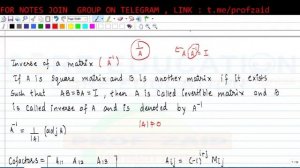 FOR NOTES JOIN GROUP ON TELEGRAM , LINK : t.me/profzaid
1/A
A·A⁻¹ = I
Inverse of a matrix ( A⁻¹ )
If A is square matrix and B is another matrix if it exists
Such that AB=BA=I , then A is Called invertible matrix and B
is Called inverse of A and is denoted by A⁻¹
|A|≠0
A⁻¹ = 1/|A| [adj A]
Cofactors = [ A₁₁ A₁₂ A₁₃
Aᵢⱼ = (-1)ⁱ⁺ʲ Mᵢⱼ